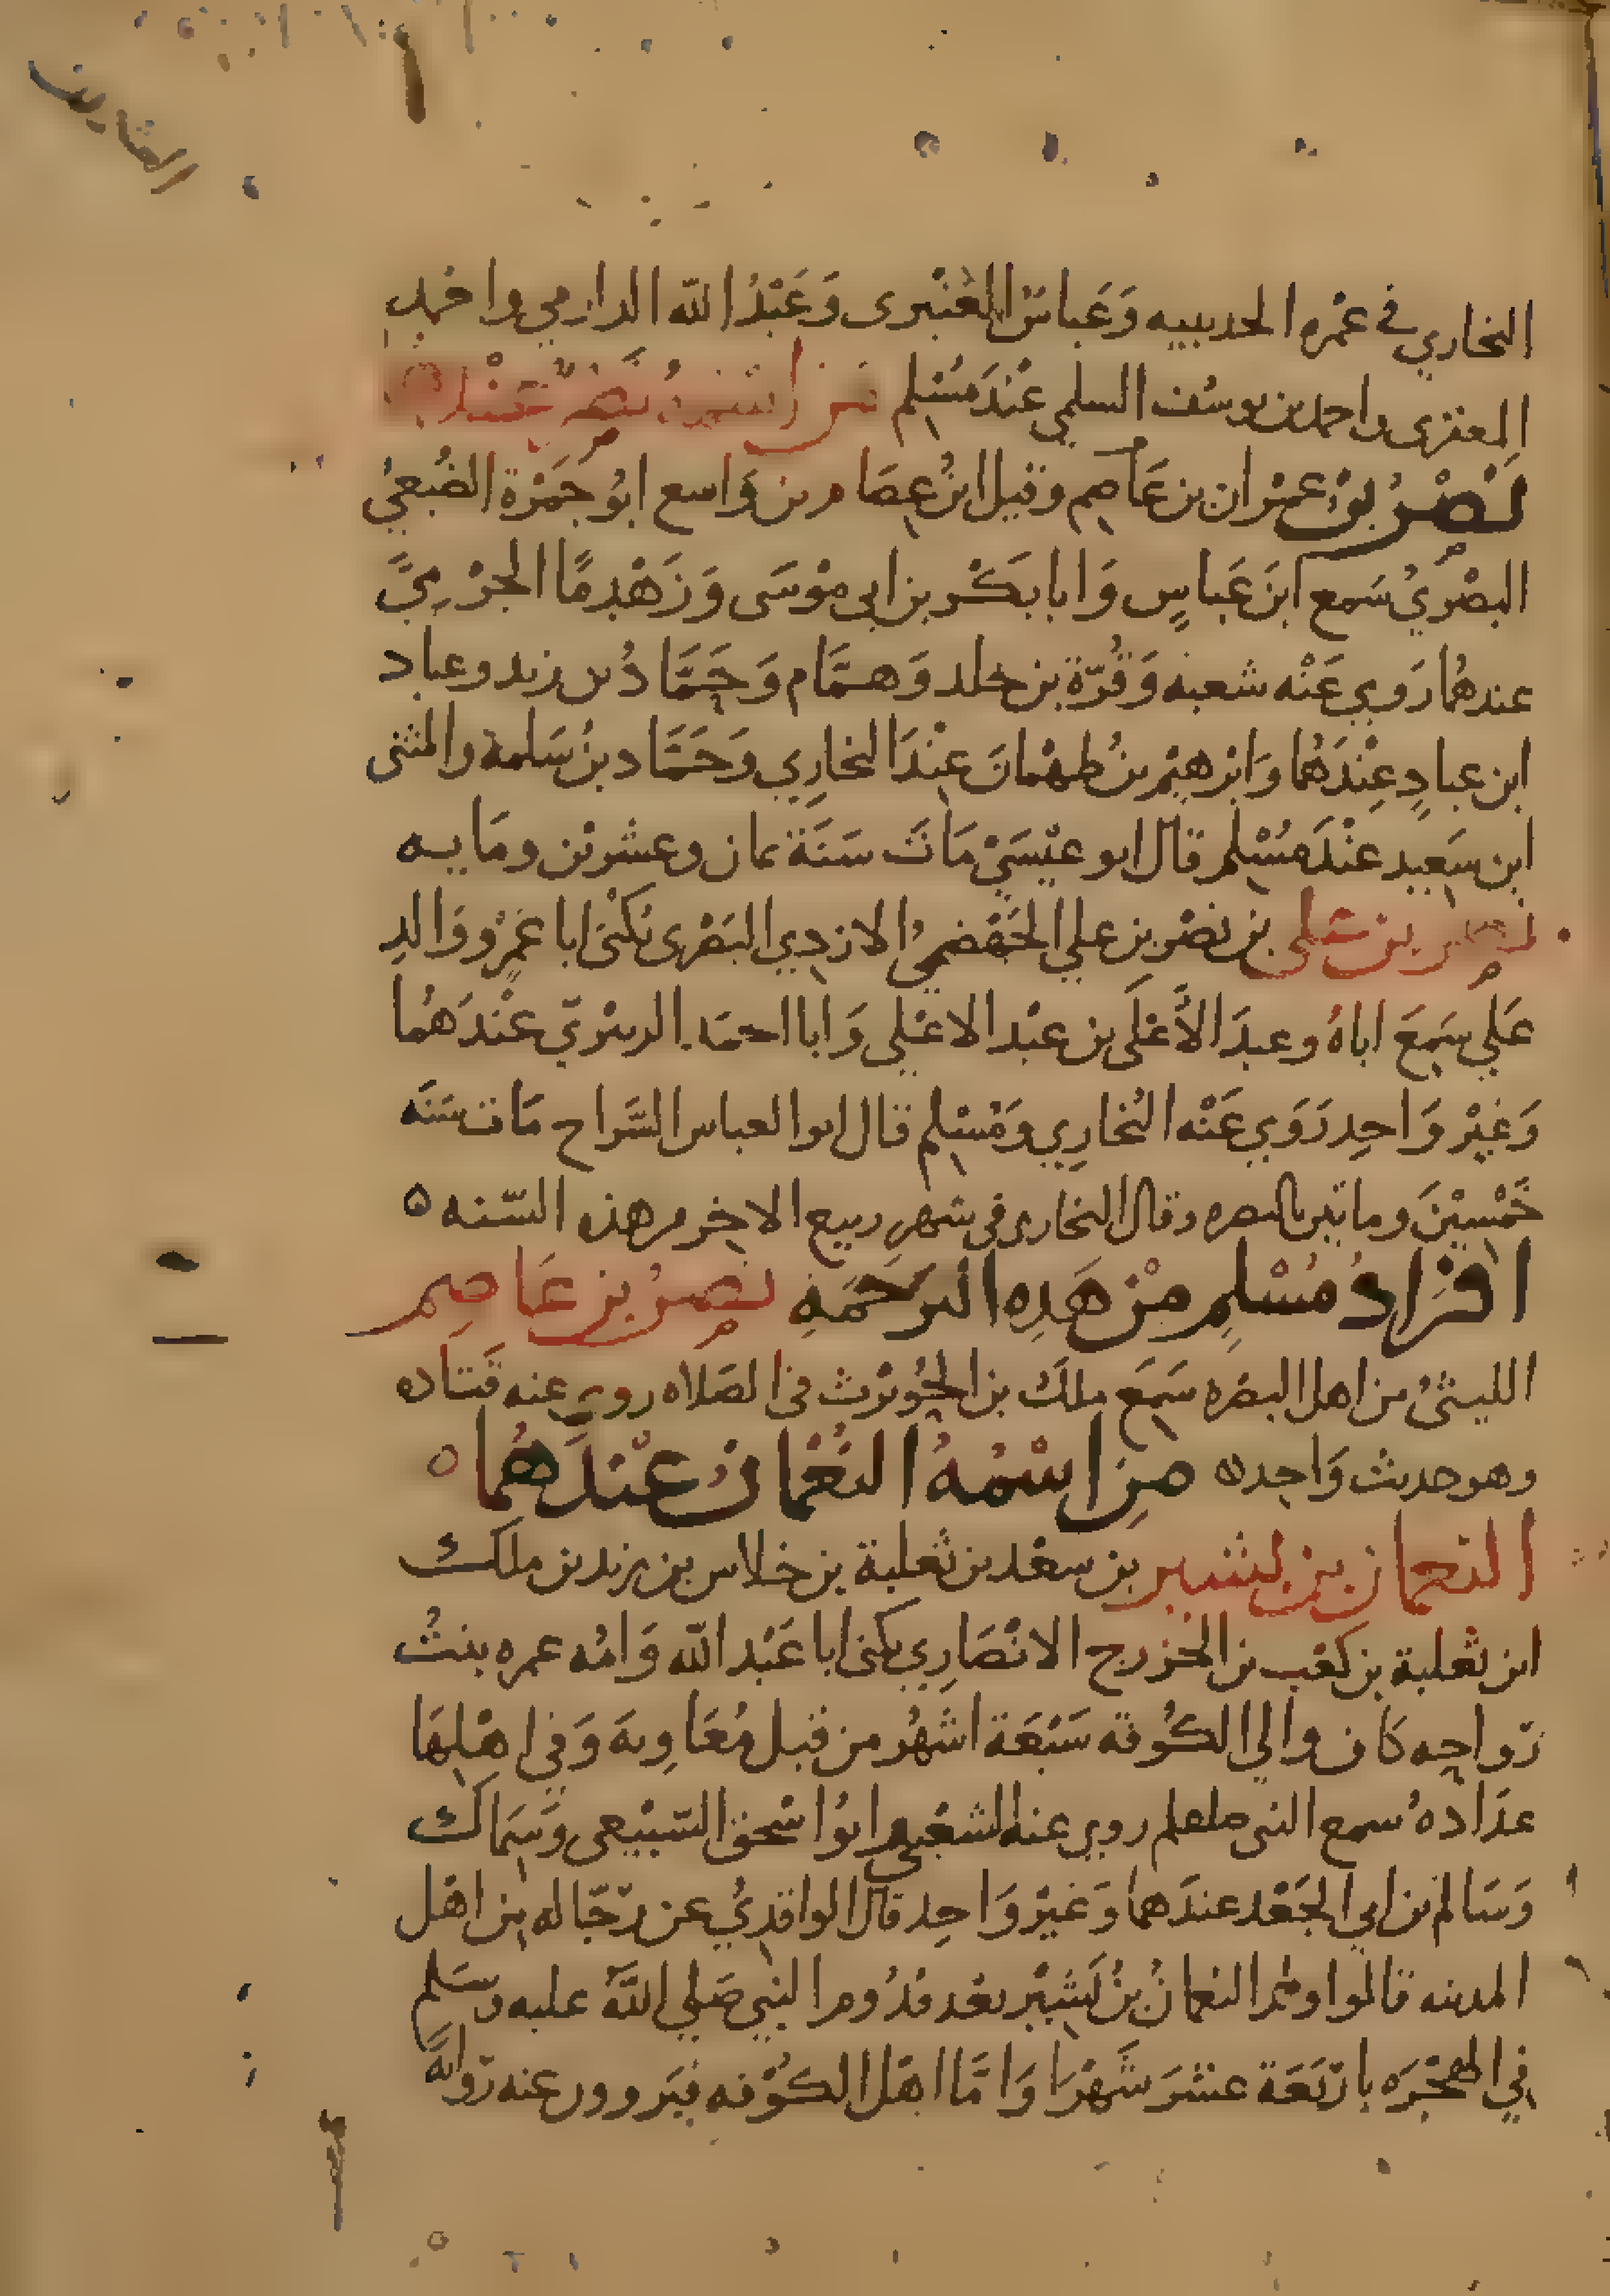 العاشر من
البخاري في عمره الحديبيه وَعَباسُ العَنْبري وَعَبْدُ الله الدارمي واحمد
المعقري واحمد بن يوسُف السلمي عنْدَ مُسْلم من اسمه نصر عندهما
نَصْرُ بنُ عمْران بن عَاصِم وقيل ابنُ عِصَام بن وَاسع ابُو جَمْرَة الضُبَعيُ
البصْرَيُ سَمع ابنَ عَباسٍ وَابا بَكْر بن ابي موْسَى وَزَهْدمًا الجرْميَّ
عندهُما رَوي عَنْه شعبه وَقُرّة بن خلد وَهمَّام وَحَمَّادُ بن زيد وعباد
ابن عبادٍ عِنْدَهُما وَابرهيْم بنُ طهْمانَ عِنْدَ البخارِي وَحَمَّاد بنُ سَلمة والمثنى
ابن سَعِيد عنْدَ مُسْلم قال ابو عيْسَيْ مَاتَ سَنَة ثمان وعشرين ومَايه
نصر بن علي بن نصْر بن علي الجَهْضَميُ الازدِي البَصْرى يُكْنىَ ابا عَمْرٍو وَالد
عَلي سَمِعَ اباهُ وعبدَ الأَعْلَى بن عبْد الاعْلي وَابا احمد الزبيْري عنْدَهُما
وَغيْر وَاحِد رَوَي عَنْه البُخارِي ومُسْلم قال ابو العباس السَّراج مَات سَنَه
خَمْسِيْنَ ومايتين بالبصره وقال البخارى في شهرِ ربيع الاخر من هذه السّنه ه
افرَادُ مُسْلمٍ مِنْ هَذِه التَرجَمَةِ نصرُ بن عَاصِم
الليثيُ من اهل البصْره سَمِعَ ملك بن الحُويْرث في الصَلاه روي عنه قَتَاده
وهو حديث وَاحِد ه منِ اسْمُهُ النُعْمانُ عنْدَهُما ه
النعمان بن بشير بن سعْد بن ثعلبة بن خلاس بن زيد بن ملك
ابن ثعْلبة بن كعْب بن الخزرج الانْصَارِي يكنى ابا عَبْد الله وَامُه عمره بنتُ
رَواحِه كَان والي الكُوفه سَبْعَة اشْهُر من قبل مُعَاوِيهَ وَفي اهْلِهَا
عدَادهُ سمع النبي صلعلم روي عنه الشعْبي وابُوا سْحق السّبيْعي وَسِمَاك
وَسَالمُ بن ابي الجَعْد عندَهما وَغيْر وَاحِد قال الواقدِيُ عن رجَاله مِن اهْل
المدينه قالوا ولد النعْمانُ بنُ بَشيْر بعْد قدُوم النبِي صَلي اللهُ عليه وسَلم
في الهجْرَه بارْبَعَة عشَرَ شَهْرًا وَامَّا اهْل الكُوْفه فيَروون عنه روَايةً